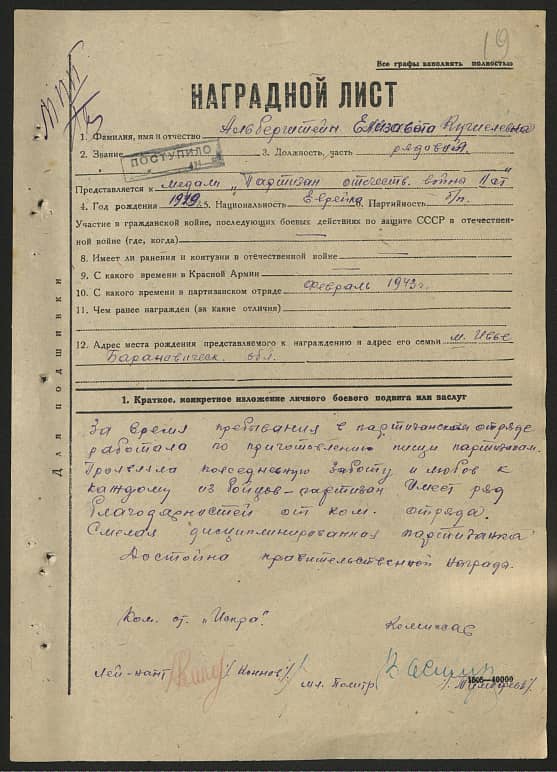 19
Все графы заполнять полностью
НАГРАДНОЙ ЛИСТ
1. Фамилия, имя и отчество Альберштейн Елизавета Кушелевна
2. Звание 3. Должность, часть рядовой.
ПОСТУПИЛО
Представляется к медали „Партизан отечеств. война II ст"
4. Год рождения 1919 5. Национальность Еврейка 6. Партийность б/п.
Участие в гражданской войне, последующих боевых действиях по защите СССР в отечествен-
ной войне (где, когда)
8. Имеет ли ранения и контузии в отечественной войне
9. С какого времени в Красной Армии
10. С какого времени в партизанском отряде февраль 1943 г.
11. Чем ранее награжден (за какие отличия)
12. Адрес места рождения представляемого к награждению и адрес его семьи м. Ивье
Барановическ. обл.
Для подшивки
1. Краткое, конкретное изложение личного боевого подвига или заслуг
За время пребывания в партизанском отряде
работала по приготовлению пищи партизанам.
Проявляла повседневную заботу и любов к
каждому из бойцов-партизан Имеет ряд
благодарностей от ком. отряда.
Смелая дисциплинированная партизанка
Достойна правительственной награда.
Ком. от. „Искра". Комиссар
Лей-нант /Коннов/.
мл. Политр.
1005—40000